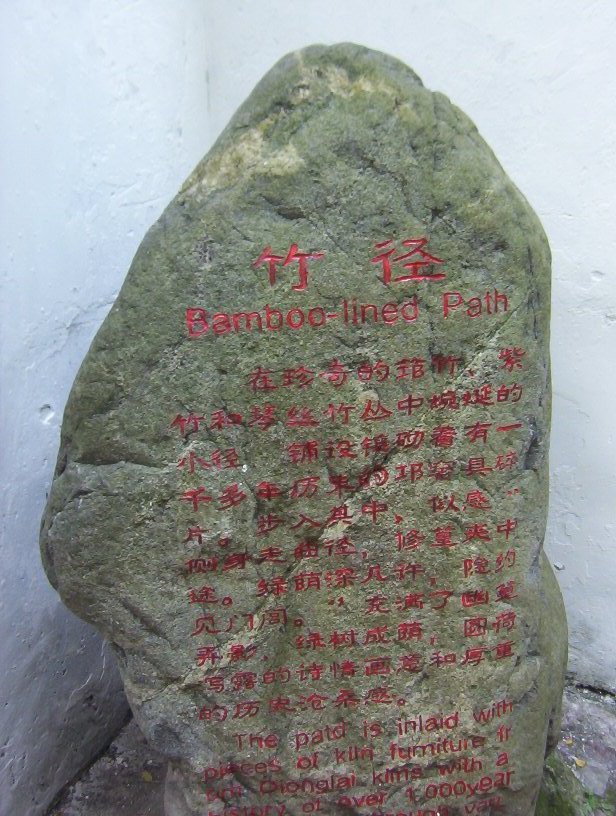 竹 径
Bamboo-lined Path
在珍奇的琯竹、紫
竹和琴丝竹丛中蜿蜒的
小径 铺设镶砌着有一
千多年历来的邛窑具碎
片。步入其中，似感“
侧身走曲径，修篁夹中
途。绿荫深几许，隐约
见门闾。”充满了幽篁
弄影，绿树成荫，圆荷
泻露的诗情画意和厚重
的历史沧桑感。
The patd is inlaid with
pieces of kiln furniture fr
Qionglai kilns with a
history of over 1,000year